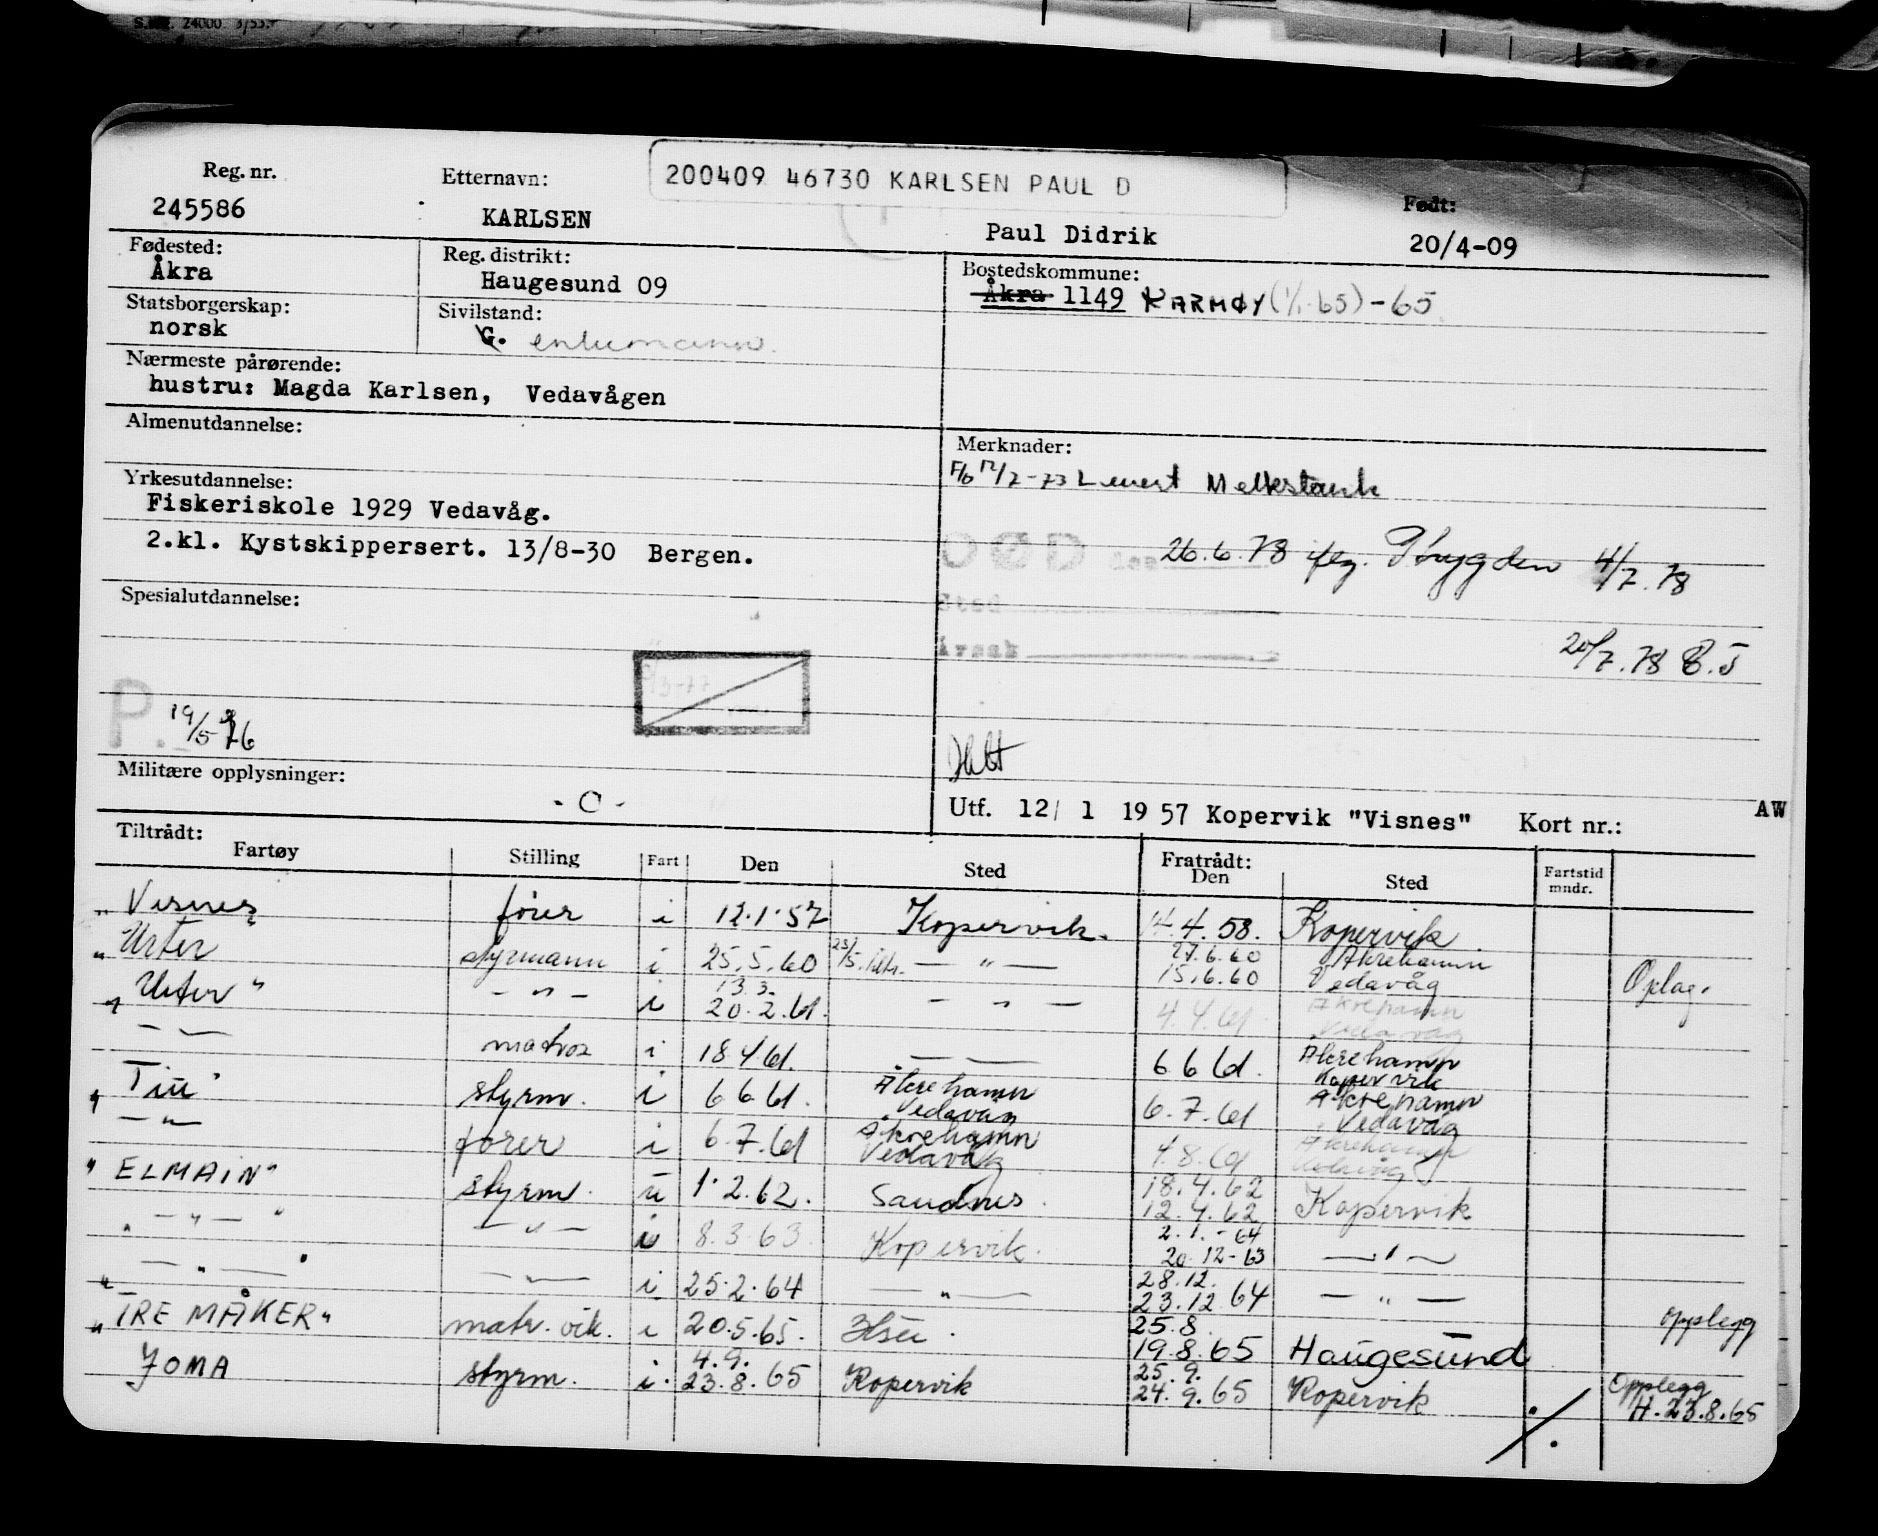 S. 24000 3/53.
200409 46730 KARLSEN PAUL D
Reg. nr. Etternavn: Født:
245586 KARLSEN Paul Didrik 20/4-09
Fødested: Reg. distrikt: Bostedskommune:
Åkra Haugesund 09 Åkra 1149 KARMØY (1/1-65) - 65
Statsborgerskap: Sivilstand:
norsk G. enkemann
Nærmeste pårørende:
hustru: Magda Karlsen, Vedavågen
Almenutdannelse: Merknader:
F/b 12/7-73 Levert Melkstank
Yrkesutdannelse:
Fiskeriskole 1929 Vedavåg.
2.kl. Kystskippersert. 13/8-30 Bergen.
DØD den 26.6.78 iflg. Trygden 4/7.78
Spesialutdannelse: Sted
Årsak 20/7.78
P. 19/5-76
Militære opplysninger:
- O -
Utf. 12/ 1 19 57 Kopervik "Visnes" Kort nr.: AW
Tiltrådt: Fratrådt:
Fartøy Stilling Fart Den Sted Den Sted Fartstid mndr.
"Visnes" fører i 12.1.57 Kopervik. 14.4.58. Kopervik.
27.6.60 Åkrehamn
"Urter styrmann i 25.5.60 23/5. — " — 15.6.60 Vedavåg Oplag.
13.3.
"Urter" - " - i 20.2.61. — " — 4.4.61. Åkrehamn Vedavåg
— " — matros i 18.4.61. — " — 6.6.61. Åkrehamn Kopervik
"Tiu" styrm. i 6.6.61. Åkrehamn Vedavåg 6.7.61 Åkrehamn Vedavåg
— " — fører i 6.7.61 Åkrehamn Vedavåg 4.8.61 Åkrehamn Vedavåg
18.4.62
"ELMAIN" styrm. u 1.2.62. Sandnes 12.4.62 Kopervik
2.1.-64
" — " — " — " — i 8.3.63 Kopervik. 20.12-63 — " —
28.12.
— " — — " — i 25.2.64 — " — 23.12.64 — " —
25.8.
"TRE MÅKER" matr. vik. i 20.5.65. 19.8.65 Haugesund opplegg
4.9. 25.9.
"JOMA styrm. i. 23.8.65 Kopervik 24.9.65 Kopervik Opplegg H. 23.8.65